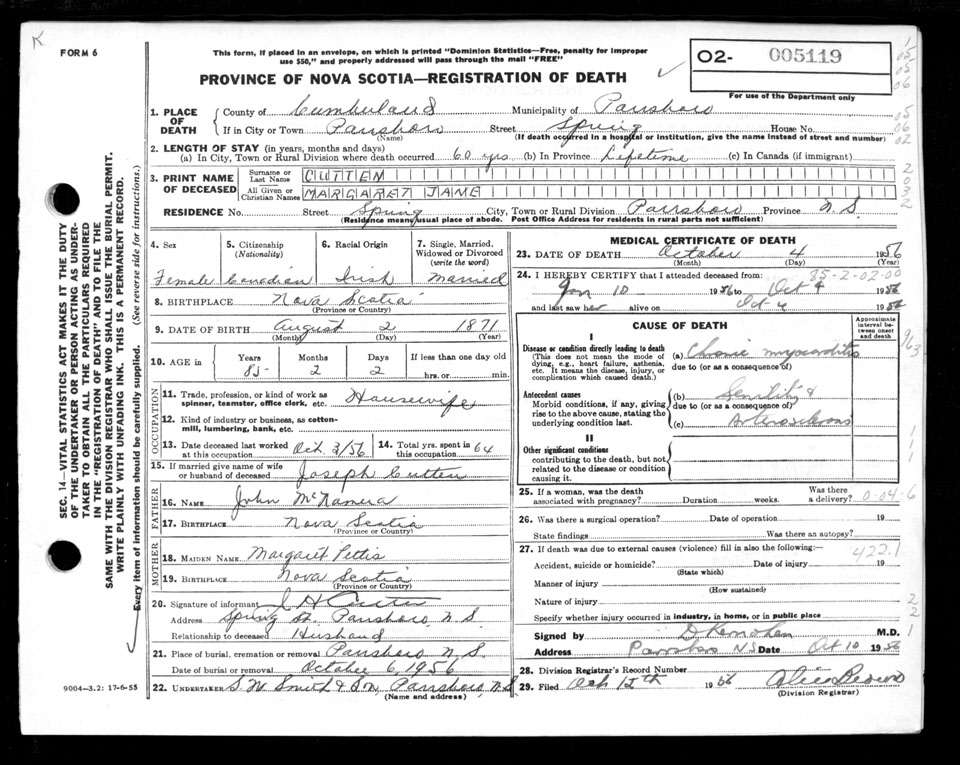 K
FORM 6
This form, if placed in an envelope, on which is printed "Dominion Statistics—Free, penalty for improper
use $50," and properly addressed will pass through the mail "FREE"
PROVINCE OF NOVA SCOTIA—REGISTRATION OF DEATH
O2- 005119
For use of the Department only
SEC. 14—VITAL STATISTICS ACT MAKES IT THE DUTY
OF THE UNDERTAKER OR PERSON ACTING AS UNDER-
TAKER TO OBTAIN ALL THE PARTICULARS REQUIRED
IN THE "REGISTRATION OF DEATH" AND TO FILE THE
SAME WITH THE DIVISION REGISTRAR WHO SHALL ISSUE THE BURIAL PERMIT.
WRITE PLAINLY WITH UNFADING INK. THIS IS A PERMANENT RECORD.
Every item of information should be carefully supplied. (See reverse side for instructions.)
9004—3.2: 17-6-55
1. PLACE OF DEATH County of Cumberland Municipality of Parrsboro
If in City or Town Parrsboro Street Spring House No.
(Name) (If death occurred in a hospital or institution, give the name instead of street and number)
2. LENGTH OF STAY (in years, months and days)
(a) In City, Town or Rural Division where death occurred 60 yrs (b) In Province Lifetime (c) In Canada (if immigrant)
3. PRINT NAME OF DECEASED Surname or Last Name CUTTEN
All Given or Christian Names MARGARET JANE
RESIDENCE No. Street Spring City, Town or Rural Division Parrsboro Province N.S.
(Residence means usual place of abode. Post Office Address for residents in rural parts not sufficient)
4. Sex 5. Citizenship (Nationality) 6. Racial Origin 7. Single, Married, Widowed or Divorced (write the word)
Female Canadian Irish Married
8. BIRTHPLACE Nova Scotia
(Province or Country)
9. DATE OF BIRTH August 2 1871
(Month) (Day) (Year)
10. AGE in Years Months Days If less than one day old
85 2 2 hrs. or min.
OCCUPATION
11. Trade, profession, or kind of work as spinner, teamster, office clerk, etc. Housewife
12. Kind of industry or business, as cotton-mill, lumbering, bank, etc.
13. Date deceased last worked at this occupation Oct 3/56 14. Total yrs. spent in this occupation 64
15. If married give name of wife or husband of deceased Joseph Cutten
FATHER
16. NAME John McNamera
17. BIRTHPLACE Nova Scotia
(Province or Country)
MOTHER
18. MAIDEN NAME Margaret Pettis
19. BIRTHPLACE Nova Scotia
(Province or Country)
20. Signature of informant J H Cutten
Address Spring St. Parrsboro, N.S.
Relationship to deceased Husband
21. Place of burial, cremation or removal Parrsboro N.S.
Date of burial or removal October 6, 1956
22. UNDERTAKER S. W. Smith & Son Parrsboro, N.S.
(Name and address)
MEDICAL CERTIFICATE OF DEATH
23. DATE OF DEATH October 4 1956
(Month) (Day) (Year)
24. I HEREBY CERTIFY that I attended deceased from: 85-2-02-00
Jan 10 1956 to Oct 4 1956
and last saw her alive on Oct 4 1956
CAUSE OF DEATH
Approximate interval between onset and death
I
Disease or condition directly leading to death (a) Chronic myocarditis
(This does not mean the mode of dying, e.g., heart failure, asthenia, etc. It means the disease, injury, or complication which caused death.)
due to (or as a consequence of)
Antecedent causes (b) Senility &
Morbid conditions, if any, giving rise to the above cause, stating the underlying condition last.
due to (or as a consequence of)
(c) Arteriosclerosis
II
Other significant conditions
contributing to the death, but not related to the disease or condition causing it.
25. If a woman, was the death associated with pregnancy? Duration weeks. Was there a delivery? 0-04-6
26. Was there a surgical operation? Date of operation 19
State findings Was there an autopsy?
27. If death was due to external causes (violence) fill in also the following:— 422.1
Accident, suicide or homicide? Date of injury 19
(State which)
Manner of injury
(How sustained)
Nature of injury
Specify whether injury occurred in industry, in home, or in public place
Signed by M.D.
Address Parrsboro N.S Date Oct 10 1956
28. Division Registrar's Record Number
29. Filed Oct 12th 1956 Alice Brown
(Division Registrar)